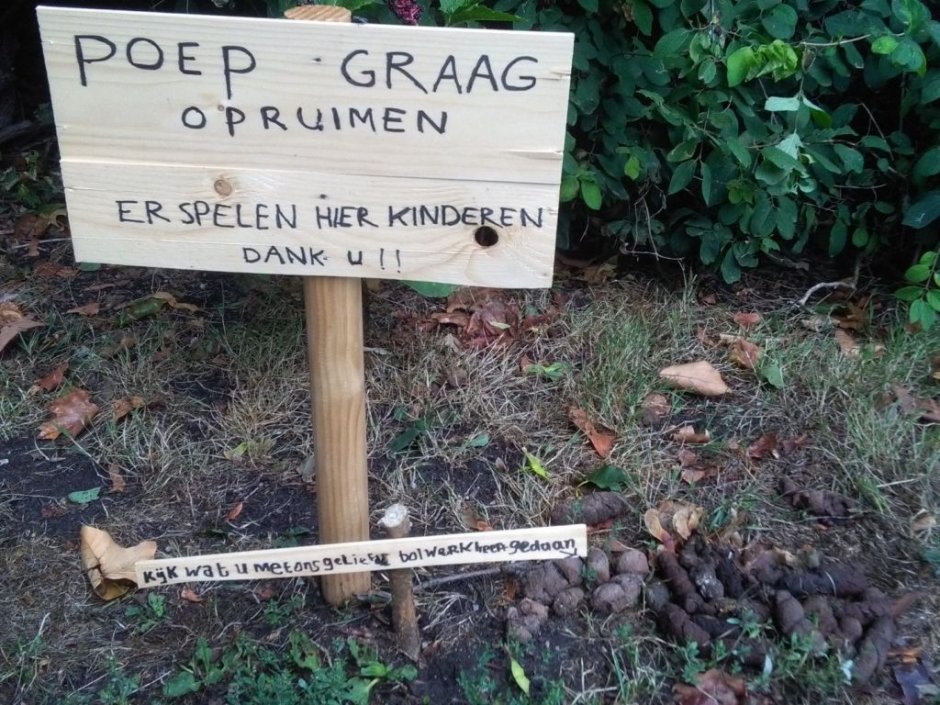 POEP GRAAG
OPRUIMEN
ER SPELEN HIER KINDEREN
DANK U!!
Kijk wat u met ons geliefd bolwerk heeft gedaan